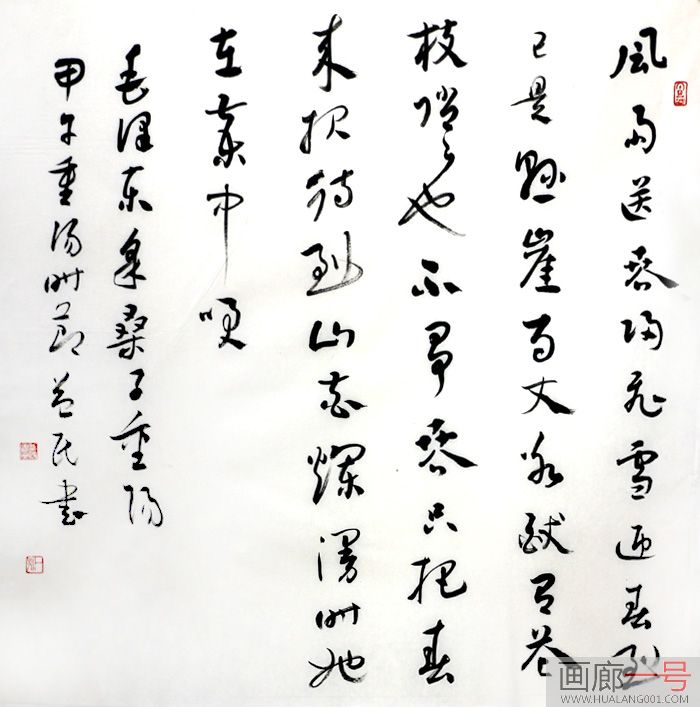 風雨送春歸飛雪迎春到
已是懸崖百丈冰猶有花
枝俏俏也不爭春只把春
來報待到山花爛漫時她
在叢中咲
毛澤東采桑子重陽
甲午重陽時節益民書
画廊一号
WWW.HUALANG001.COM